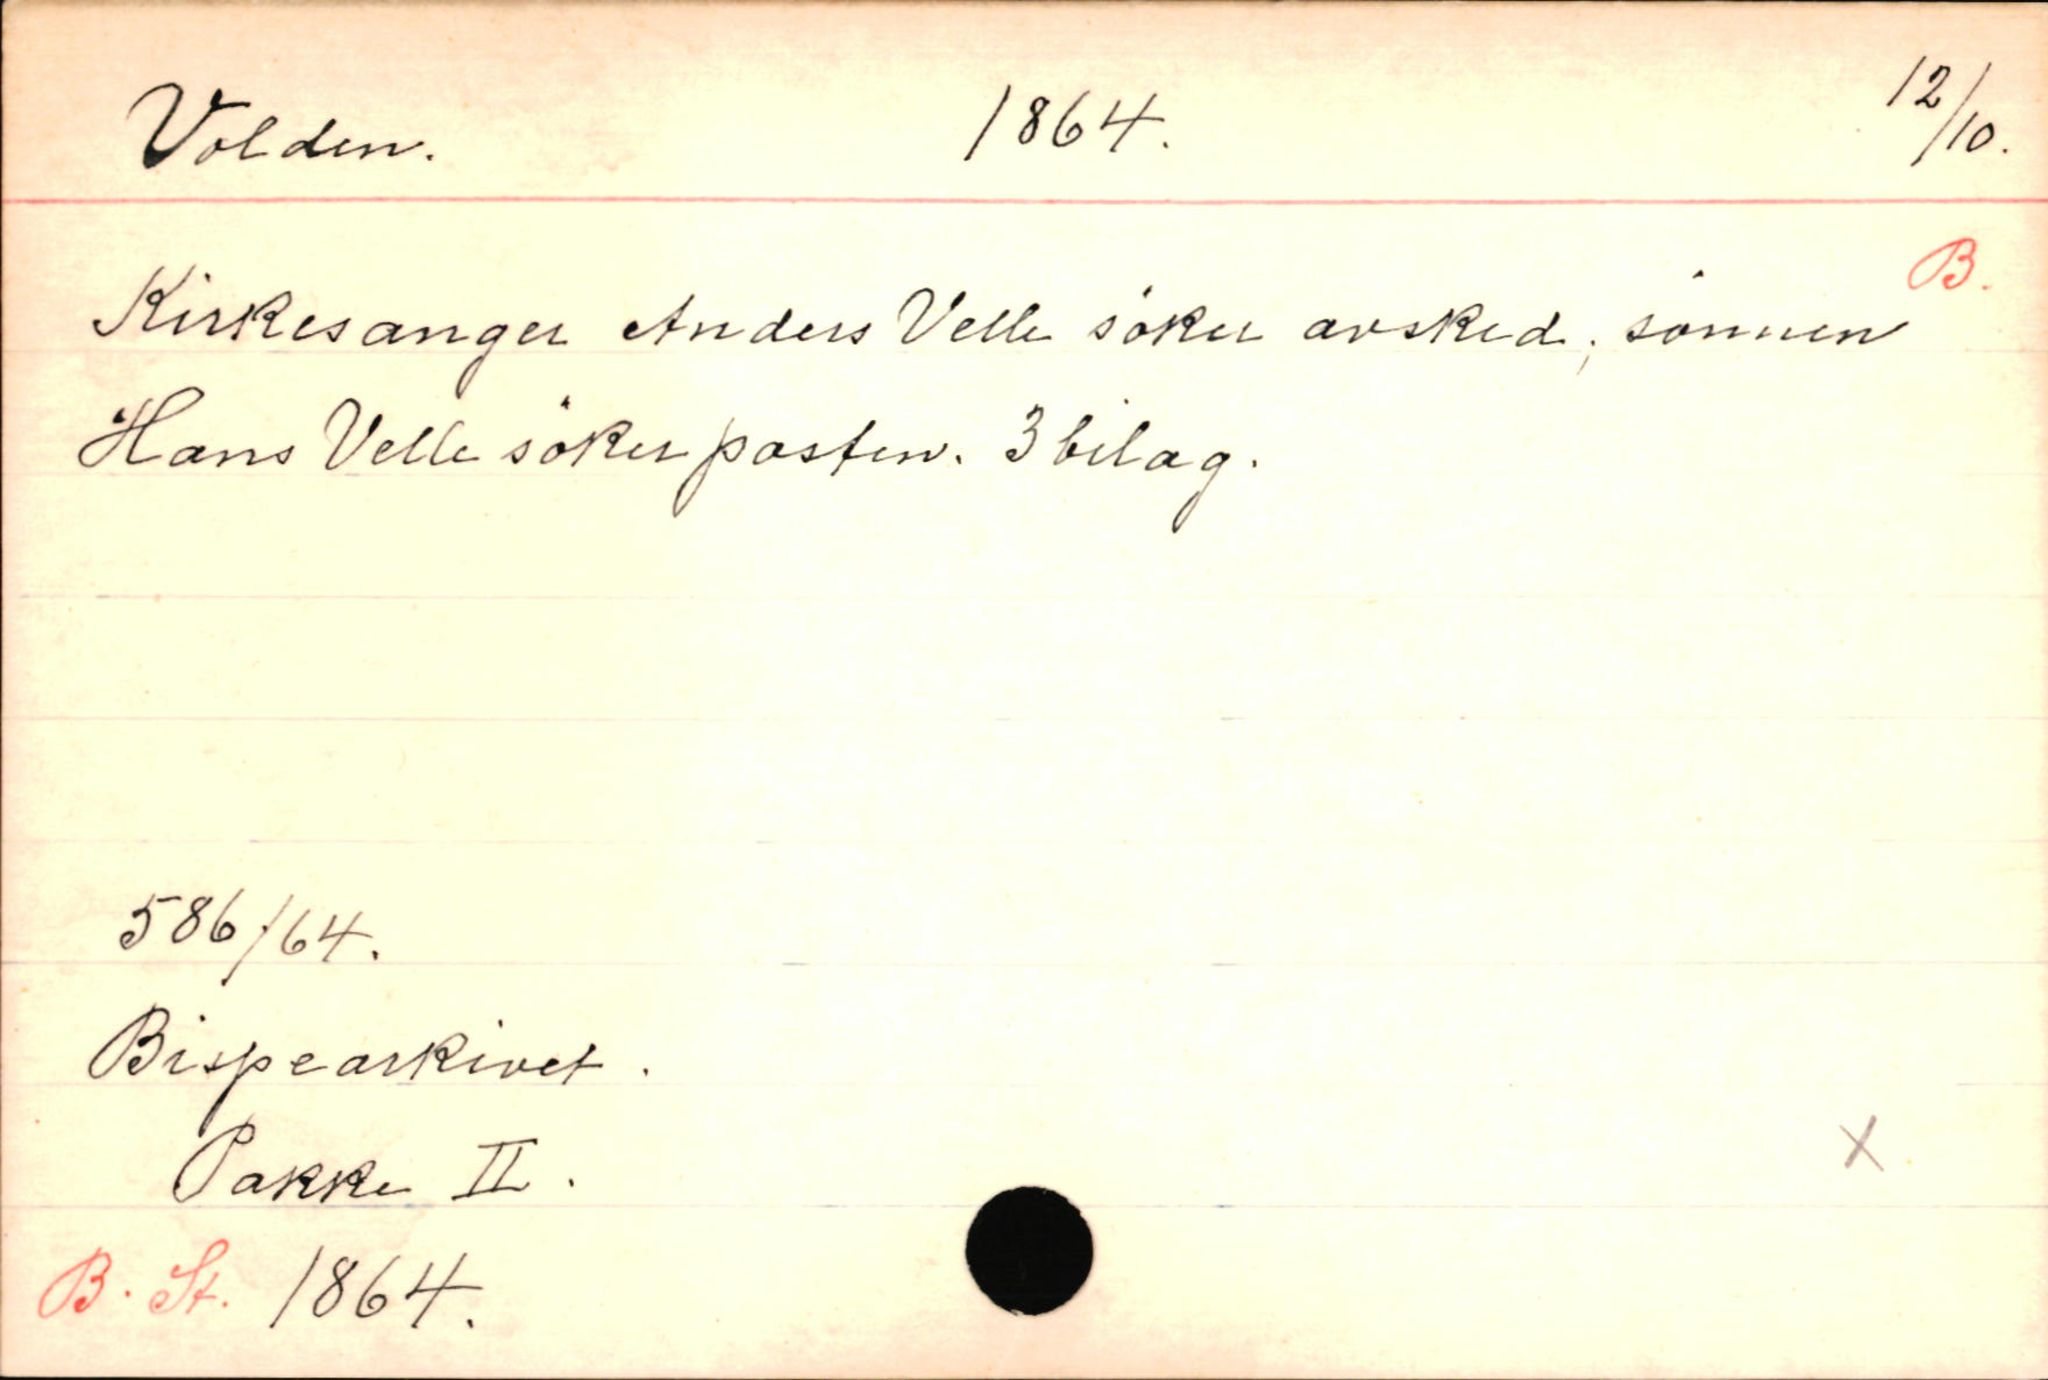 Volden. 1864. 12/10.
B.
Kirkesanger Anders Velle söker avsked; sönnen
Hans Velle söker posten. 3 bilag.
586/64.
Bispearkivet.
Pakke II.
X
B. St. 1864.